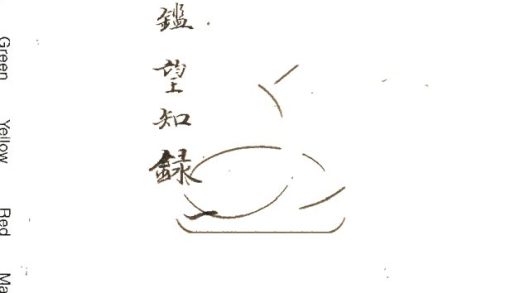 鑑望知録一
Green Yellow Red Ma